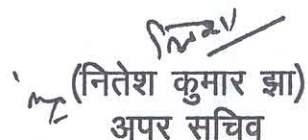 (नितेश कुमार झा)
अपर सचिव